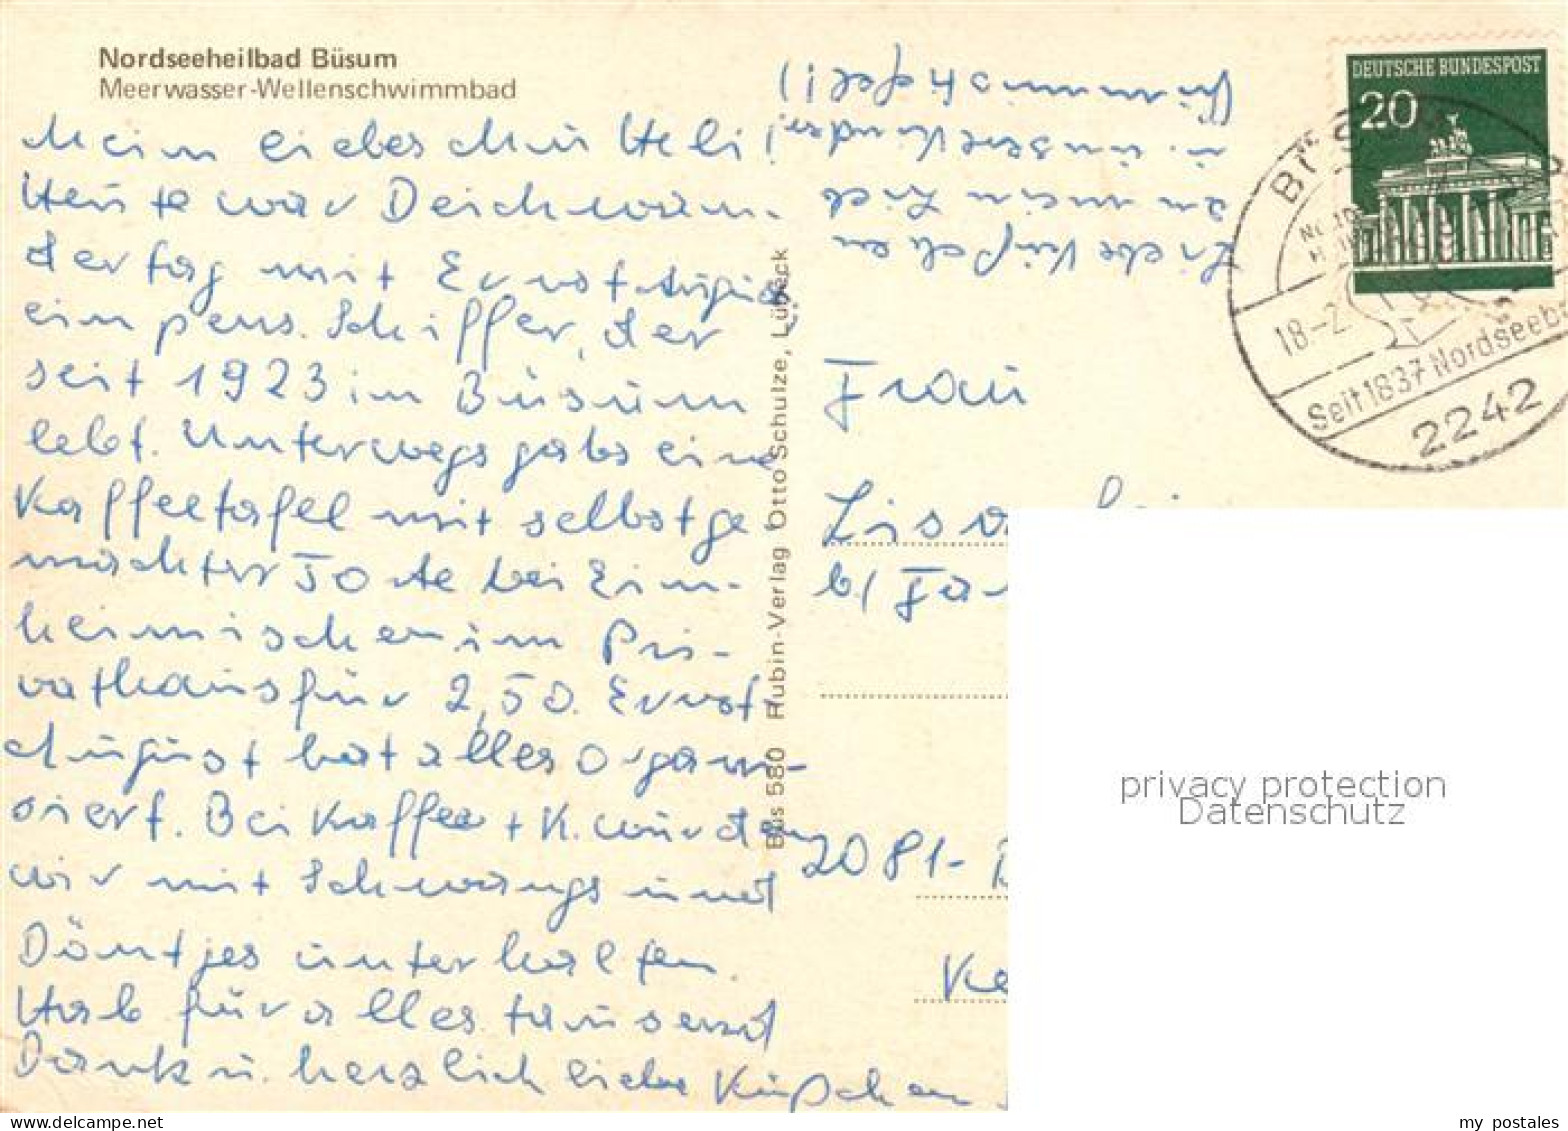 Nordseeheilbad Büsum
Meerwasser-Wellenschwimmbad
Mein liebes Heli!
Heute war Deichwan-
dertag mit Ernst August
ein pens. Schiffer, der
seit 1923 in Büsum
lebt. Unterwegs gabs eine
Kaffeetafel mit selbstge
machter Torte bei Ein-
heimischen im Pri-
vathaus für 2,50. Ernst
August hat alles organi-
siert. Bei Kaffee + K. wurden
wir mit Schwangs und
Döntjes unterhalten.
Hab für alles tausend
Dank u. herzlich liebe Küßchen
Liebe Küßchen
an mein Lieb
u. unsere Kinder!
!!)
Büs 580 Rubin-Verlag Otto Schulze, Lübeck
DEUTSCHE BUNDESPOST
20
BÜSUM
18-2
Seit 1837 Nordseeba
2242
Frau
b/ Fa
2081-
Ke
privacy protection
Datenschutz
my postales